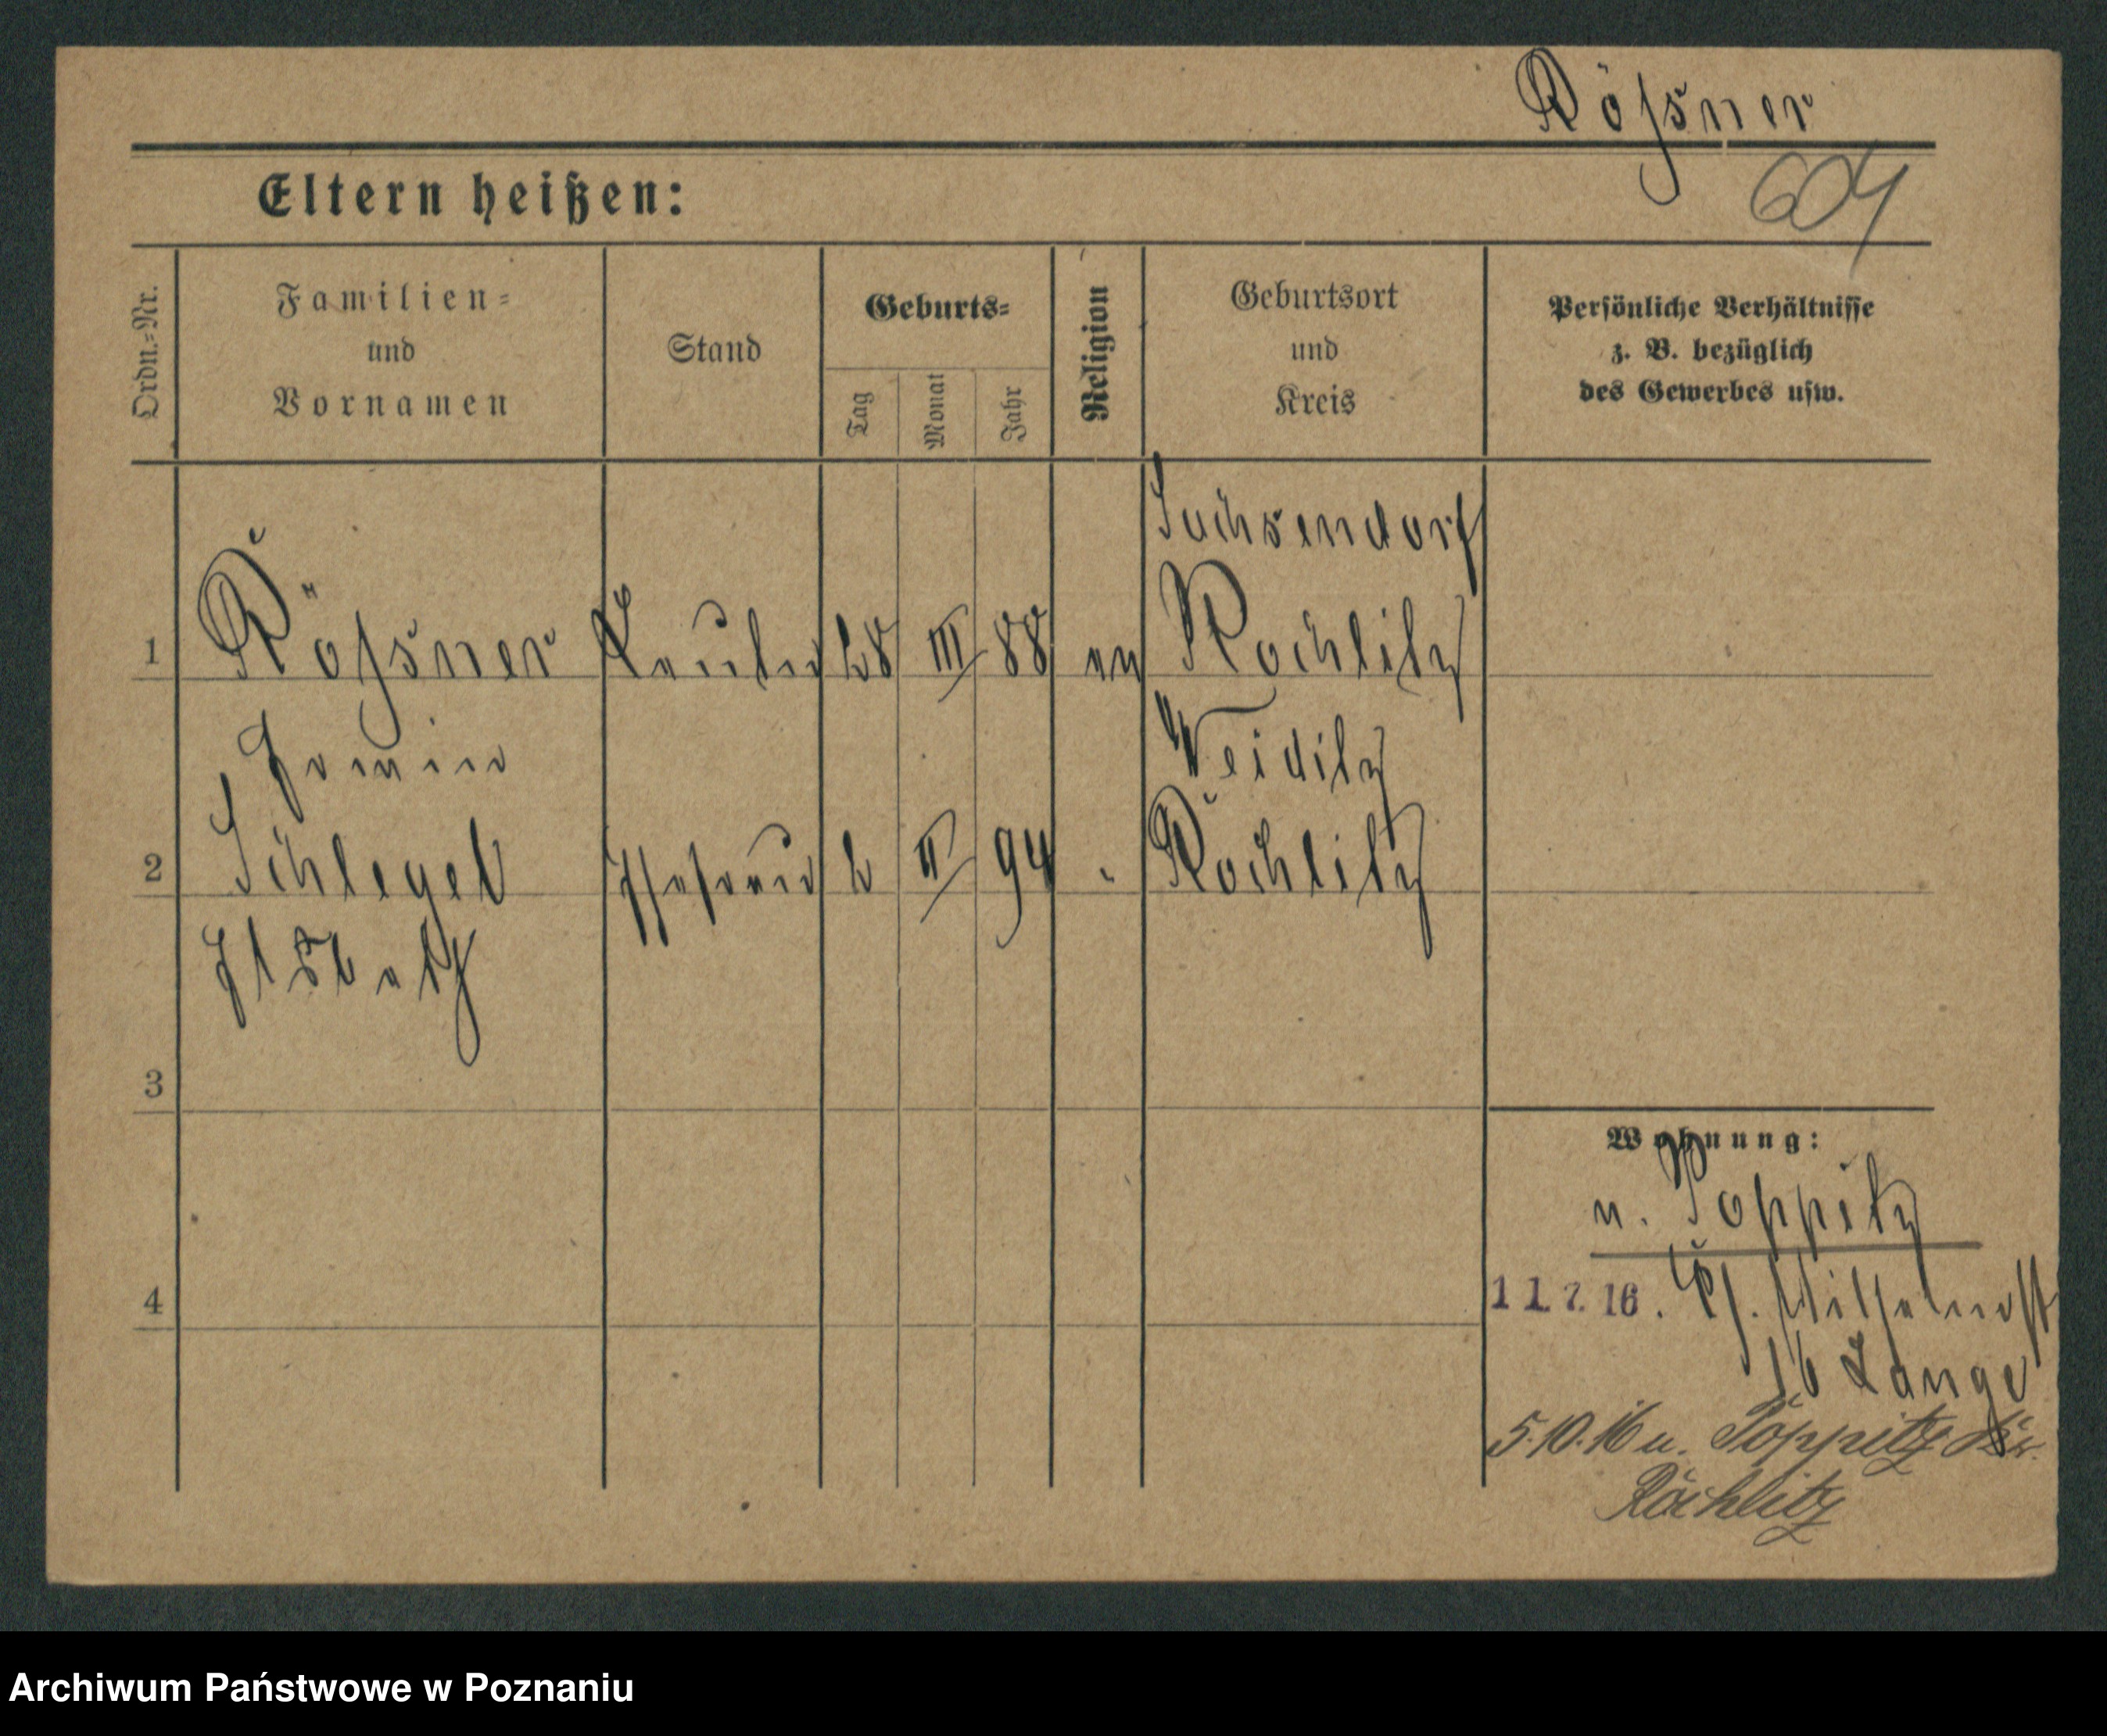 Rößner
604
Eltern heißen:
Ordn.-Nr.
Familien-
und
Vornamen
Stand
Geburts-
Tag
Monat
Jahr
Religion
Geburtsort
und
Kreis
Persönliche Verhältnisse
z. B. bezüglich
des Gewerbes usw.
Sachsendorf
1 Rößner 28 III 88 ev Rochlitz
Weiditz
2 Schlegel Ehefrau 2 II 94 " Rochlitz
Elsbeth
3
Wohnung:
n. Poppitz
4
11. 7. 16. Wilhelmstr
16 Lange
5.10.16 n. Poppitz Kr.
Rochlitz
Archiwum Państwowe w Poznaniu